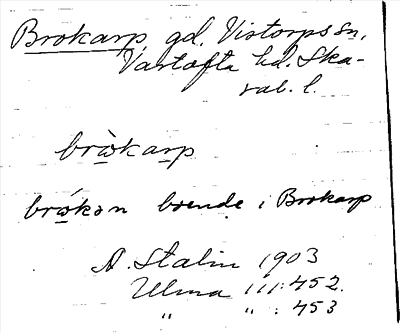 Brokarp, gd, Vistorps sn,
Vartofta hd. Ska-
rab. l.
brò̱karp
bró̱kən boende i Brokarp
A. Stalin 1903
Ulma 111:452.
" " : 453